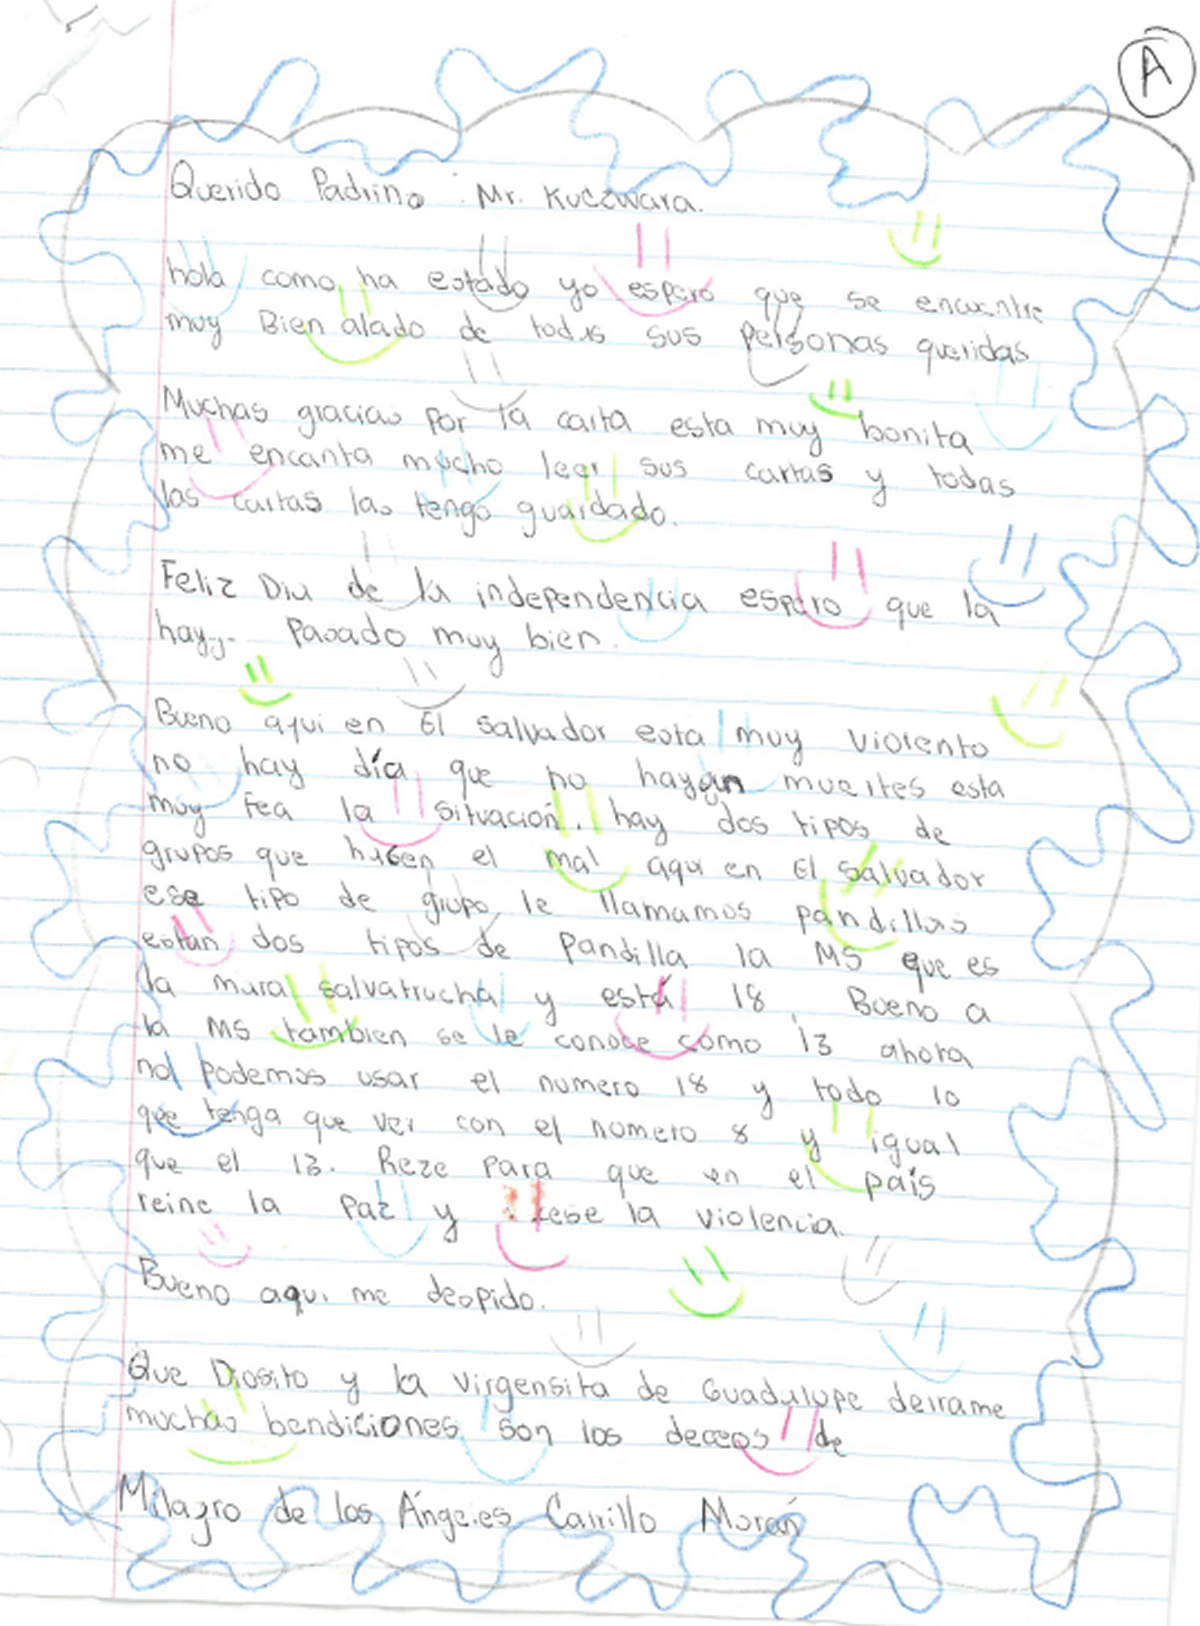 A
Querido Padrino : Mr. Kuczwara.
hola como ha estado yo espero que se encuentre
muy Bien alado de todas sus personas queridas
Muchas gracias por la carta esta muy bonita
me encanta mucho leer sus cartas y todas
las cartas las tengo guardado.
Feliz Dia de la independencia espero que la
haya pasado muy bien.
Bueno aqui en El salvador esta muy violento
no hay día que no hayan muertes esta
muy fea la situación. hay dos tipos de
grupos que hacen el mal aqui en El Salvador
ese tipo de grupo le llamamos pandillas
estan dos tipos de Pandilla la MS que es
la mara salvatrucha y está 18. Bueno a
la MS tambien se le conoce como 13 ahora
no podemos usar el numero 18 y todo lo
que tenga que ver con el numero 8 y igual
que el 13. Reze para que en el país
reine la Paz y cese la violencia.
Bueno aqui me despido.
Que Diosito y la virgensita de Guadalupe deirame
muchas bendiciones son los deceos de
Milagro de los Ángeles Carrillo Morán